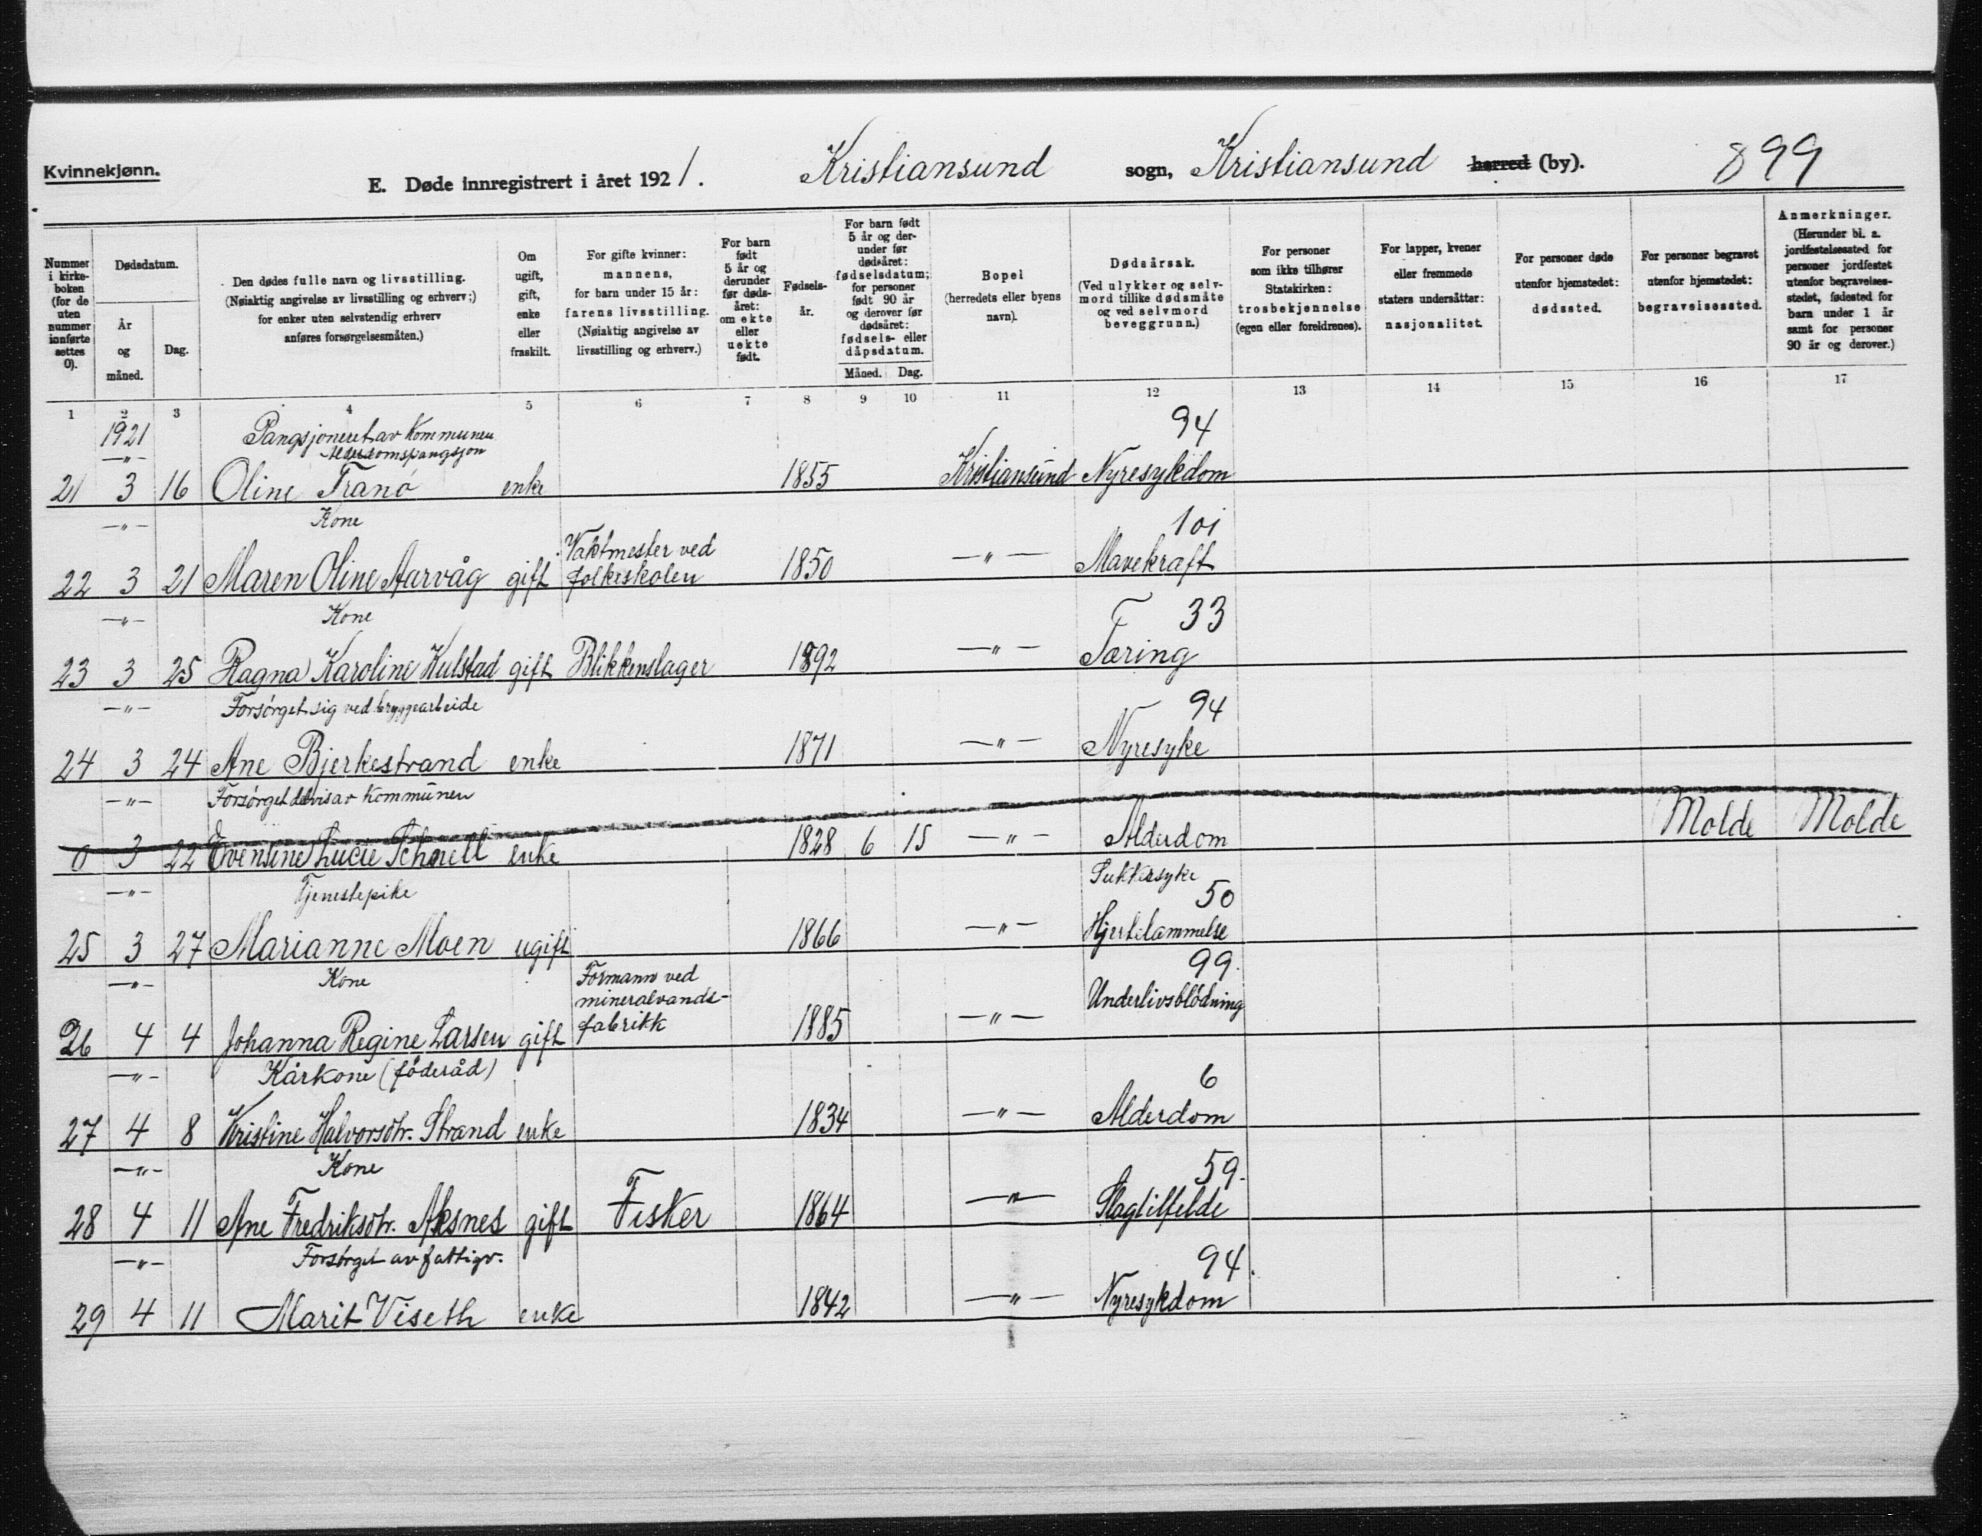 Kvinnekjønn.
E. Døde innregistrert i året 1921. Kristiansund sogn, Kristiansund herred (by). 899
Nummer i kirkeboken (for de uten nummer innførte settes 0).
Dødsdatum.
År og måned.
Dag.
Den dødes fulle navn og livsstilling. (Nøiaktig angivelse av livsstilling og erhverv;) for enker uten selvstendig erhverv anføres forsørgelsesmåten.)
Om ugift, gift, enke eller fraskilt.
For gifte kvinner: mannens, for barn under 15 år: farens livsstilling. (Nøiaktig angivelse av livsstilling og erhverv.)
For barn født 5 år og derunder før dødsåret: om ekte eller uekte født.
Fødselsår.
For barn født 5 år og derunder før dødsåret: fødselsdatum; for personer født 90 år og derover før dødsåret: fødsels- eller dåpsdatum.
Måned. Dag.
Bopel (herredets eller byens navn).
Dødsårsak. (Ved ulykker og selvmord tillike dødsmåte og ved selvmord beveggrunn.)
For personer som ikke tilhører Statskirken: trosbekjennelse (egen eller foreldrenes).
For lapper, kvener eller fremmede staters undersåtter: nasjonalitet.
For personer døde utenfor hjemstedet: dødssted.
For personer begravet utenfor hjemstedet: begravelsessted.
Anmerkninger. (Herunder bl. a. jordfestelsessted for personer jordfestet utenfor begravelsesstedet, fødested for barn under 1 år samt for personer 90 år og derover.)
1 2 3 4 5 6 7 8 9 10 11 12 13 14 15 16 17
1921 Pangsjoneret av Kommunen 94
—"— Alderdomspangsjon
21 3 16 Oline Tranø enke 1855 Kristiansund Nyresykdom
—"— Kone 101
Vaktmester ved
22 3 21 Maren Oline Aarvåg gift folkeskolen 1850 —"— Mavekraft
—"— Kone 33
23 3 25 Ragna Karoline Kulstad gift Blikkenslager 1892 —"— Tæring
—"— Forsørget sig ved bryggearbeide 94
24 3 24 Ane Bjerkestrand enke 1871 —"— Nyresyke
—"— Forsørget delvis av Kommunen
0 3 22 Evensine Lucie Schnell enke 1828 6 15 —"— Alderdom Molde Molde
—"— Tjenestepike Sukkersyke 50
25 3 27 Marianne Moen ugift 1866 —"— Hjertelammelse
—"— Kone Formann ved 99.
mineralvands-
26 4 4 Johanna Regine Larsen gift fabrikk 1885 —"— Underlivsblødning
—"— Kårkone (føderåd) 6
27 4 8 Kristine Halvorsdtr. Strand enke 1834 —"— Alderdom
—"— Kone 59.
28 4 11 Ane Fredriksdtr. Aksnes gift Fisker 1864 —"— Slagtilfelde
—"— Forsørget av fattigv. 94.
29 4 11 Marit Viseth enke 1842 —"— Nyresykdom